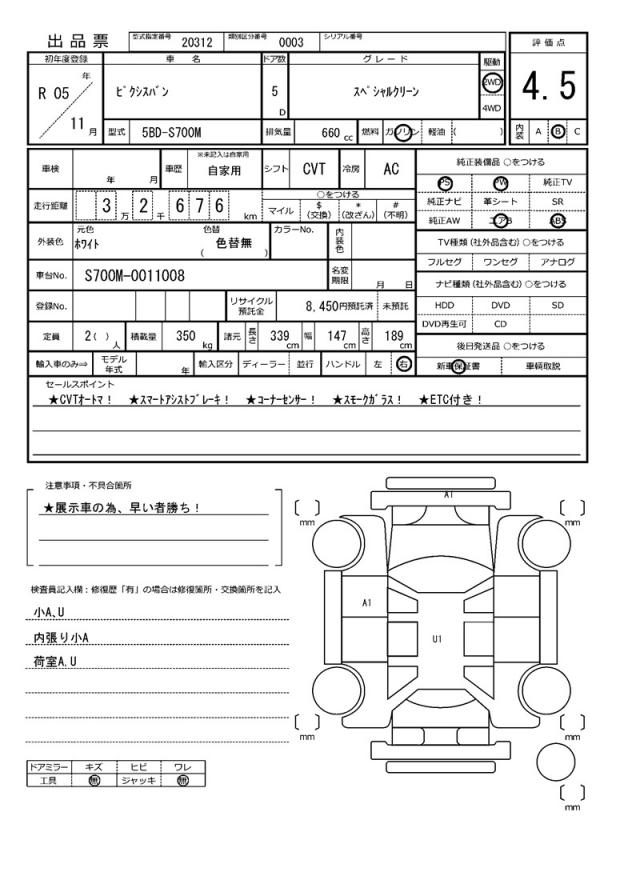 出品票
型式指定番号 20312 類別区分番号 0003 シリアル番号
評価点
4.5
内装 A B C
初年度登録 車名 ドア数 グレード 駆動
R 05 年 11 月
ﾋﾟｸｼｽﾊﾞﾝ 5 D ｽﾍﾟｼｬﾙｸﾘｰﾝ 2WD 4WD
型式 5BD-S700M 排気量 660 cc 燃料 ガソリン 軽油 ( )
車検 年 月 車歴 ※未記入は自家用 自家用 シフト CVT 冷房 AC
走行距離 3 万 2 千 6 7 6 km
○をつける
マイル $ (交換) * (改ざん) # (不明)
外装色 元色 ﾎﾜｲﾄ 色替 ( 色替無 ) カラーNo. 内装色
車台No. S700M-0011008 名変期限 月 日
登録No. リサイクル預託金 8,450円預託済 未預託
定員 2( ) 人 積載量 350 kg 諸元 長さ 339 cm 幅 147 cm 高さ 189 cm
輸入車のみ⇒ モデル年式 年 輸入区分 ディーラー 並行 ハンドル 左 右
純正装備品 ○をつける
PS PW 純正TV
純正ナビ 革シート SR
純正AW エアB ABS
TV種類 (社外品含む) ○をつける
フルセグ ワンセグ アナログ
ナビ種類 (社外品含む) ○をつける
HDD DVD SD
DVD再生可 CD
後日発送品 ○をつける
新車保証書 車輌取説
セールスポイント
★CVTオートマ！ ★ｽﾏｰﾄｱｼｽﾄﾌﾞﾚｰｷ！ ★ｺｰﾅｰｾﾝｻｰ！ ★ｽﾓｰｸｶﾞﾗｽ！ ★ETC付き！
注意事項・不具合箇所
★展示車の為、早い者勝ち！
検査員記入欄：修復歴「有」の場合は修復箇所・交換箇所を記入
小A､U
内張り小A
荷室A.U
ドアミラー キズ ヒビ ワレ
工具 無 ジャッキ 無
A1
[ ] mm [ ] mm
A1
U1
[ ] mm [ ] mm
[ ] mm